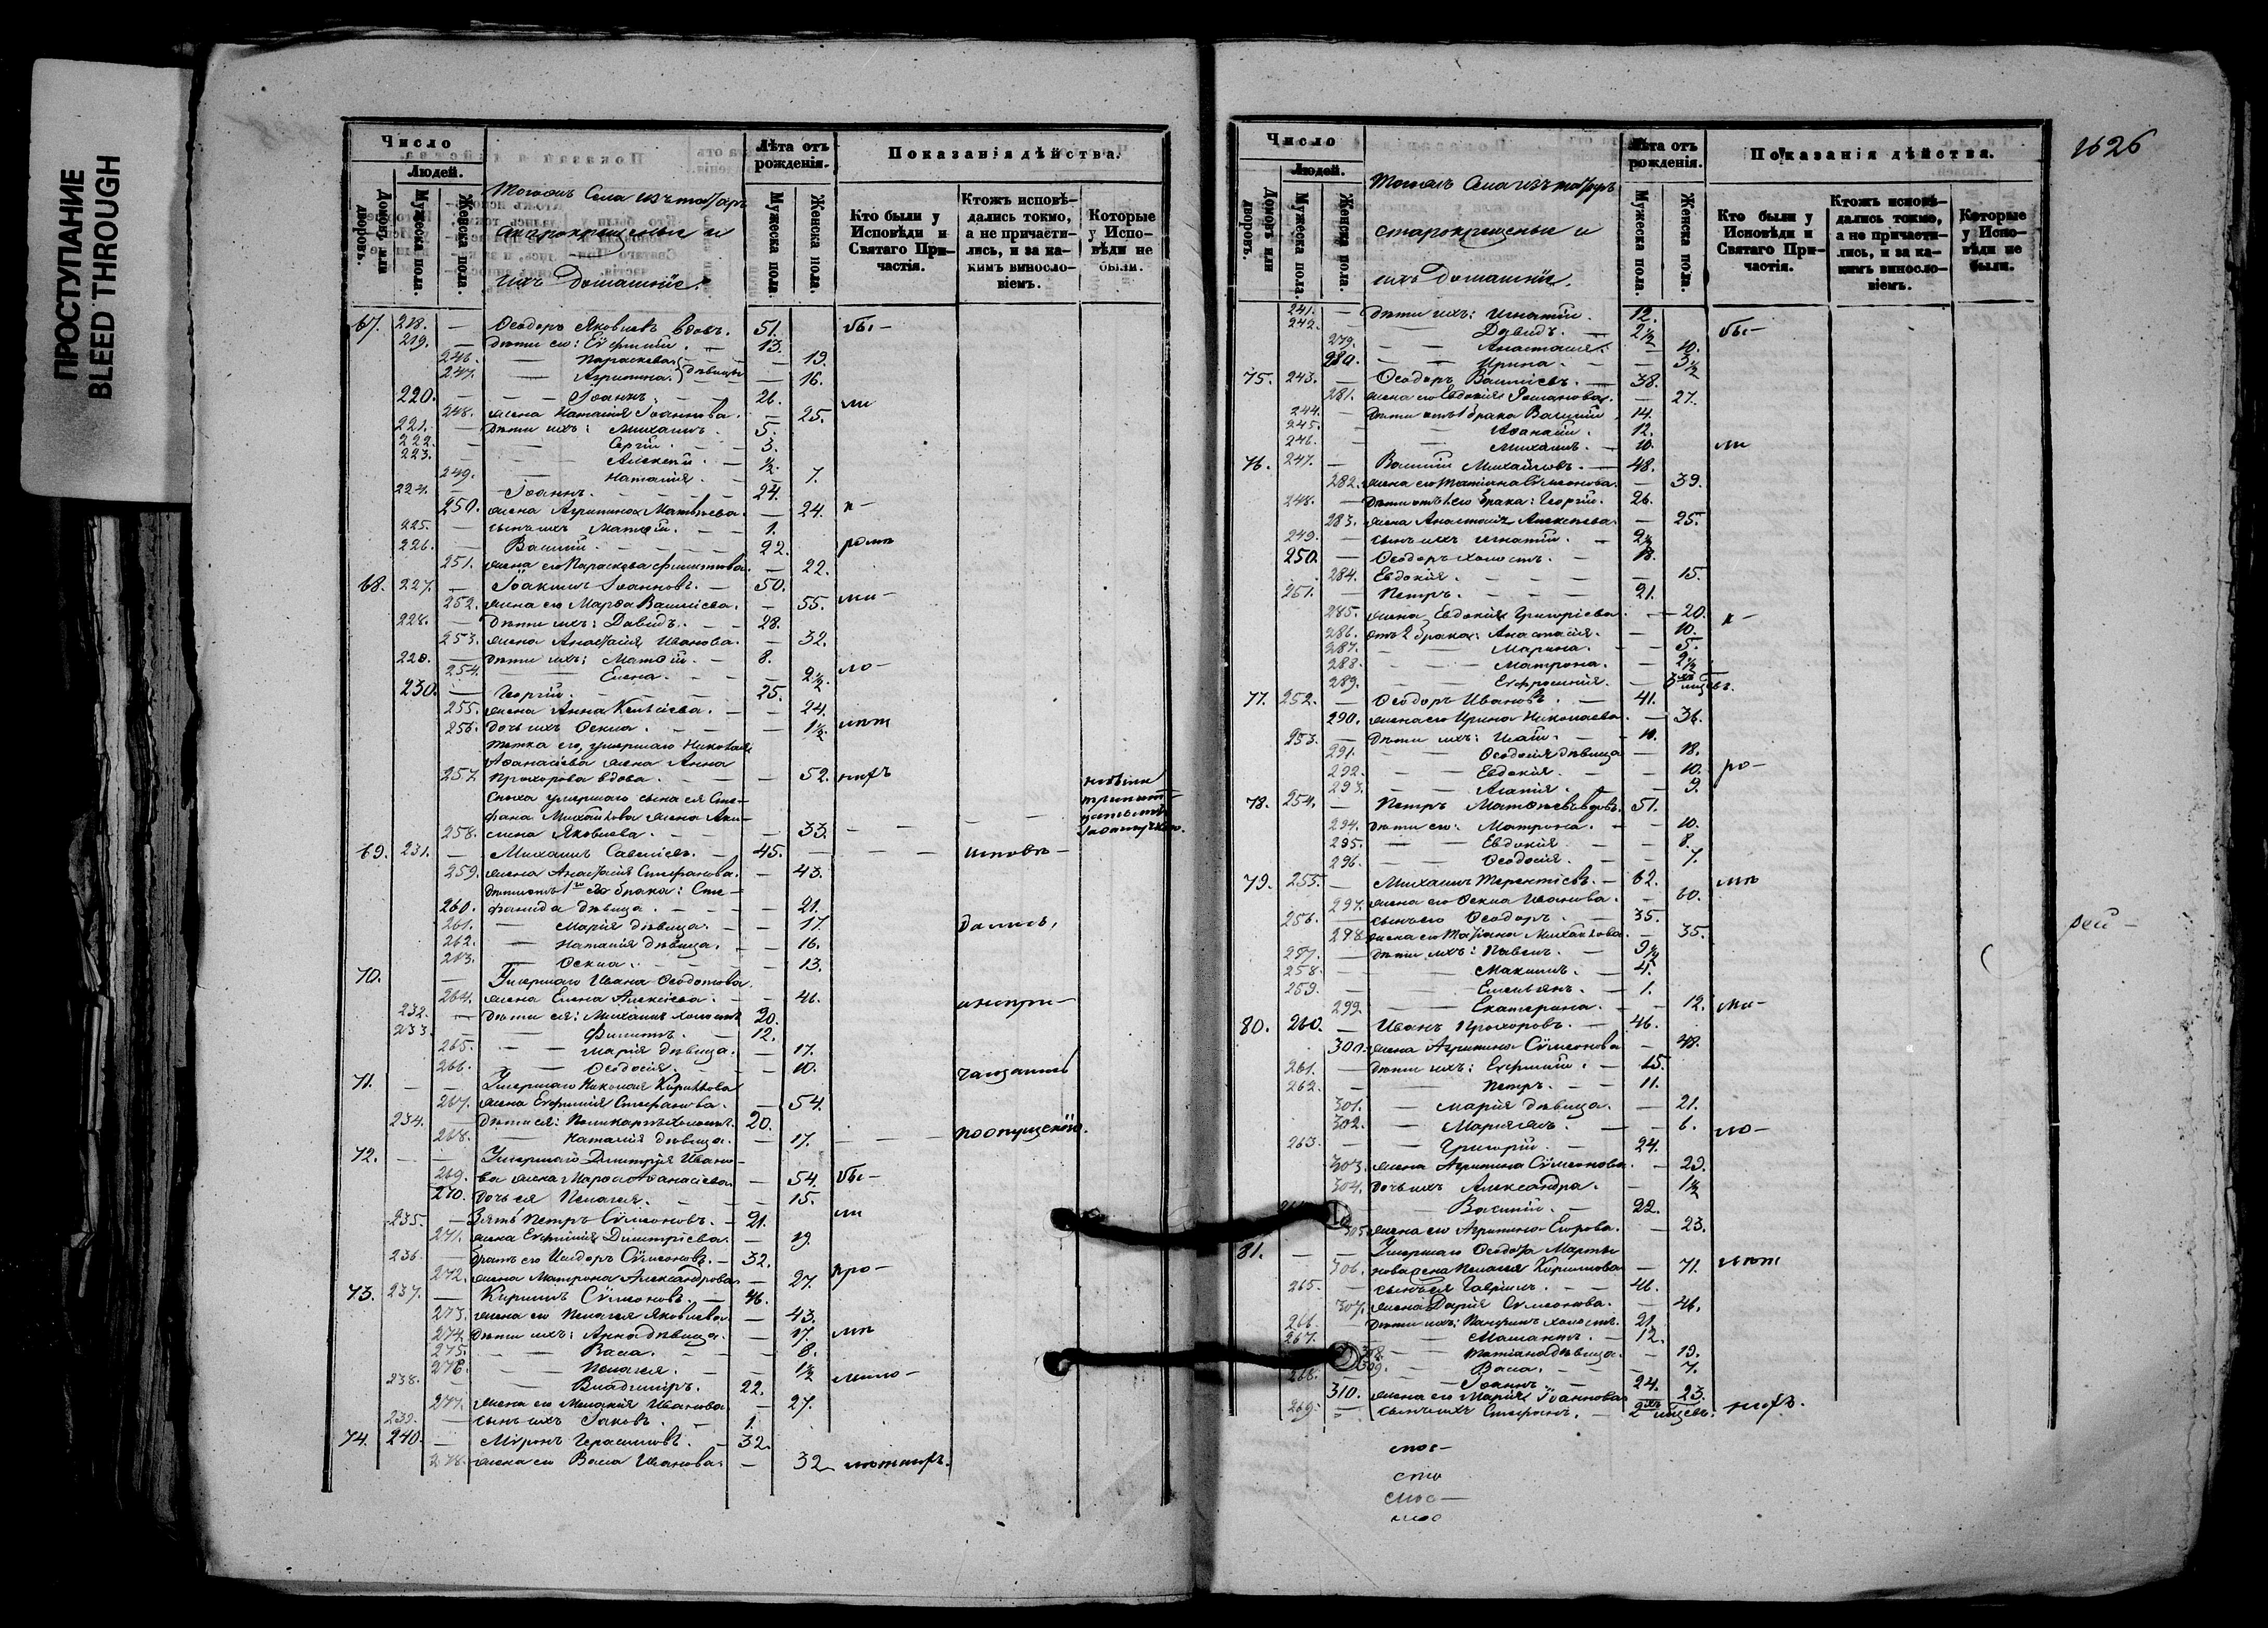 ПРОСТУПАНИЕ
BLEED THROUGH
Число
Людей.
Домовъ или дворовъ.
Мужеска пола.
Женска пола.
Тогожъ Села изъ татаръ
старокрещеные и
ихъ домашнїе.
Лѣта отъ рожденія.
Мужеска пола.
Женска пола.
Показанія дѣйства.
Кто были у Исповѣди и Святаго Причастія.
Ктожъ исповѣ-
дались токмо,
а не причасти-
лись, и за ка-
кимъ винословіемъ.
Которые у Испо-
вѣди не были.
67. 218. — Ѳеодоръ Яковлевъ вдовъ. 51. бы-
219. — дѣти его: Евфимій. — 13.
246. — Параскева — 19.
247. — Агрипина } дѣвицы — 16.
220. — Іоаннъ. — 26. ли
248. жена Наталія Іоаннова. — 25.
221. — дѣти ихъ: Михаилъ. 5.
222. — Сергій. — 3.
223. — Алексѣй. — ½.
249. — Наталія. — 7.
224. — Іоаннъ. — 24.
250. жена Агрипина Матвѣева. — 24. у-
225. — сынъ ихъ Матѳій. — 1.
226. — Василій. — 22.
251. жена его Параскева Филиппова. — 22.
68. 227. — Іоакимъ Іоанновъ. — 50.
252. жена его Марѳа Василіева. — 55.
228. — дѣти ихъ: Давидъ. — 28.
253. жена Анастасія Иванова. — 32.
229. — дѣти ихъ: Матѳій. — 8.
254. — Елена. — 2½.
230. — Георгій. — 25.
255. жена Анна Кельсіева. — 24.
256. дочь ихъ Ѳекла. — 1½
тетка его, умершаго Николая
Аѳанасіева жена Анна
257. Прохорова вдова. — 52.
сноха умершаго сына ея Сте-
фана Михайлова жена Аки-
258. лина Яковлева. — 33.
69. 231. — Михаилъ Савеліевъ. — 45. исповѣ-
259. жена Анастасія Стефанова. — 43.
дѣти отъ 1го его брака: Сте-
260. фанида дѣвица. — 21.
261. — Марія дѣвица. — 17. дались,
262. — Наталія дѣвица. — 16.
263. — Ѳекла. — 13.
70. — Умершаго Ивана Ѳеодотова
264. жена Елена Алексіева. — 46. а не при-
232. — дѣти ея: Михаилъ холостъ 20.
233. — Филиппъ. — 12.
265. — Марія дѣвица. — 17.
266. — Ѳеодосія. — 10. чащались
71. — Умершаго Николая Кирилова
267. жена Евфимія Стефанова. — 54.
234. — дѣти ея: Поликарпъ холостъ. 20.
268. — Наталія дѣвица. — 17. по опущенію.
72. — Умершаго Димитрія Ивано-
269. ва жена Марѳа Аѳанасіева. — 54. бы-
270. дочь ея Пелагея. — 15.
235. — Зять Петръ Сѵмеоновъ. — 21. ли
271. жена Евфимія Димитріева. — 19.
236. — братъ его Исидоръ Сѵмеоновъ. — 32.
272. жена Матрона Александрова. — 27.
73. 237. — Кирилъ Сѵмеоновъ. — 46.
273. жена его Пелагея Яковлева — 43.
274. дѣти ихъ: Анна дѣвица. — 17.
275. — Васа. — 8.
276. — Пелагея. — 1½
238. — Владиміръ. 22.
277. жена его Меланія Иванова — 27.
239. — сынъ ихъ Іаковъ. — 1.
74. 240. — Мѵронъ Герасимовъ. — 32.
278. жена его Васа Иванова. — 32
1626
Число
Людей.
Домовъ или дворовъ.
Мужеска пола.
Женска пола.
Тогожъ Села изъ татаръ
старокрещеные и
ихъ домашнїе.
Лѣта отъ рожденія.
Мужеска пола.
Женска пола.
Показанія дѣйства.
Кто были у Исповѣди и Святаго Причастія.
Ктожъ исповѣ-
дались токмо,
а не причасти-
лись, и за ка-
кимъ винословіемъ.
Которые у Испо-
вѣди не были.
241. — дѣти ихъ: Игнатій. 12. бы-
242. — Давидъ. — 2½
279. — Анастасія. — 10.
280. — Ирина. — 3½
75. 243. — Ѳеодоръ Василіевъ. — 38.
281. жена его Евдокія Романова. — 27.
244. — дѣти отъ 1 брака Василій. 14.
245. — Аѳанасій. 12.
246. — Михаилъ. — 10. ли
76. 247. — Василій Михайловъ. — 48.
282. жена его Татіана Сѵмеонова. — 39.
248. — дѣти отъ 1 его брака: Георгій. 26.
283. жена Анастасія Алексѣева. — 25.
249. — сынъ ихъ Игнатій. — 2½
250. — Ѳеодоръ холостъ. — 18.
284. Евдокія. — 15.
251. — Петръ. — 21.
285. жена Евдокія Григорьева. — 20. у-
286. отъ 2 брака: Анастасія. — 10.
287. — Марина. — 5.
288. — Матрона. — 2½
289. — Евфросинія. — 3хъ мѣсяцевъ.
77. 252. — Ѳеодоръ Ивановъ. — 41.
290. жена его Ирина Николаева. — 36.
253. — дѣти ихъ: Исай. — 11.
291. — Ѳеодосія дѣвица — 18.
292. — Евдокія. — 10.
293. — Агапія. — 9.
78. 254. — Петръ Матѳѣевъ вдовъ. 51.
294. дѣти его: Матрона. — 10.
295. — Евдокія. — 8.
296. — Ѳеодосія. — 7.
79. 255. — Михаилъ Терентіевъ. — 62.
297. жена его Ѳекла Иванова. — 60.
256. — сынъ его Ѳеодоръ. — 35.
298. жена его Татіана Михайлова. — 35.
257. — дѣти ихъ: Павелъ. — 9½
258. — Максимъ. — 4.
259. — Емельянъ. — 1.
299. — Екатерина. — 12.
80. 260. — Иванъ Прохоровъ. — 46.
300. жена Агрипина Сѵмеонова — 48.
261. — дѣти ихъ: Евфимій. — 15.
262. — Петръ. — 11.
301. — Марія дѣвица. — 21.
302. — 6.
263. — Григорій. — 24.
303. жена Агрипина Сѵмеонова. — 29.
304. дочь ихъ Александра. — 1½
— Василій. — 22.
305 жена его Агрипина Егорова. — 23.
81. — Умершаго Ѳеодота Марты-
306. нова жена Пелагея Кирилова — 71.
265. — сынъ ея Гавріилъ. — 46.
307. жена Дарія Сѵмеонова. — 46.
266. — дѣти ихъ: Панфилъ холостъ. 21.
267. — 12.
308. — Татіана дѣвица. — 19.
309. — Васа. — 7.
268. — Іоаннъ. — 24.
310. жена его Марія Іоаннова — 23.
269. — сынъ ихъ Стефанъ. — 2хъ мѣсяцевъ.